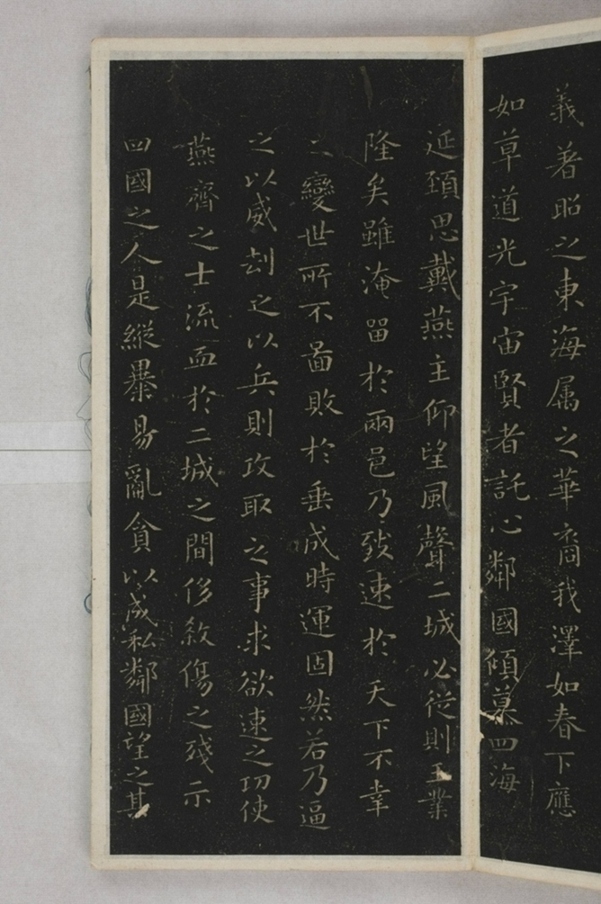 義著昭之東海属之華裔我澤如春下應
如草道光宇宙賢者託心鄰國傾慕四海
延頚思戴燕主仰望風聲二城必從則王業
隆矣雖淹留於兩邑乃致速於天下不幸
之變世所不啚敗於垂成時運固然若乃逼
之以威刼之以兵則攻取之事求欲速之功使
燕齊之士流血於二城之間侈煞傷之殘示
四國之人是縱暴易亂貪以成私鄰國望之其